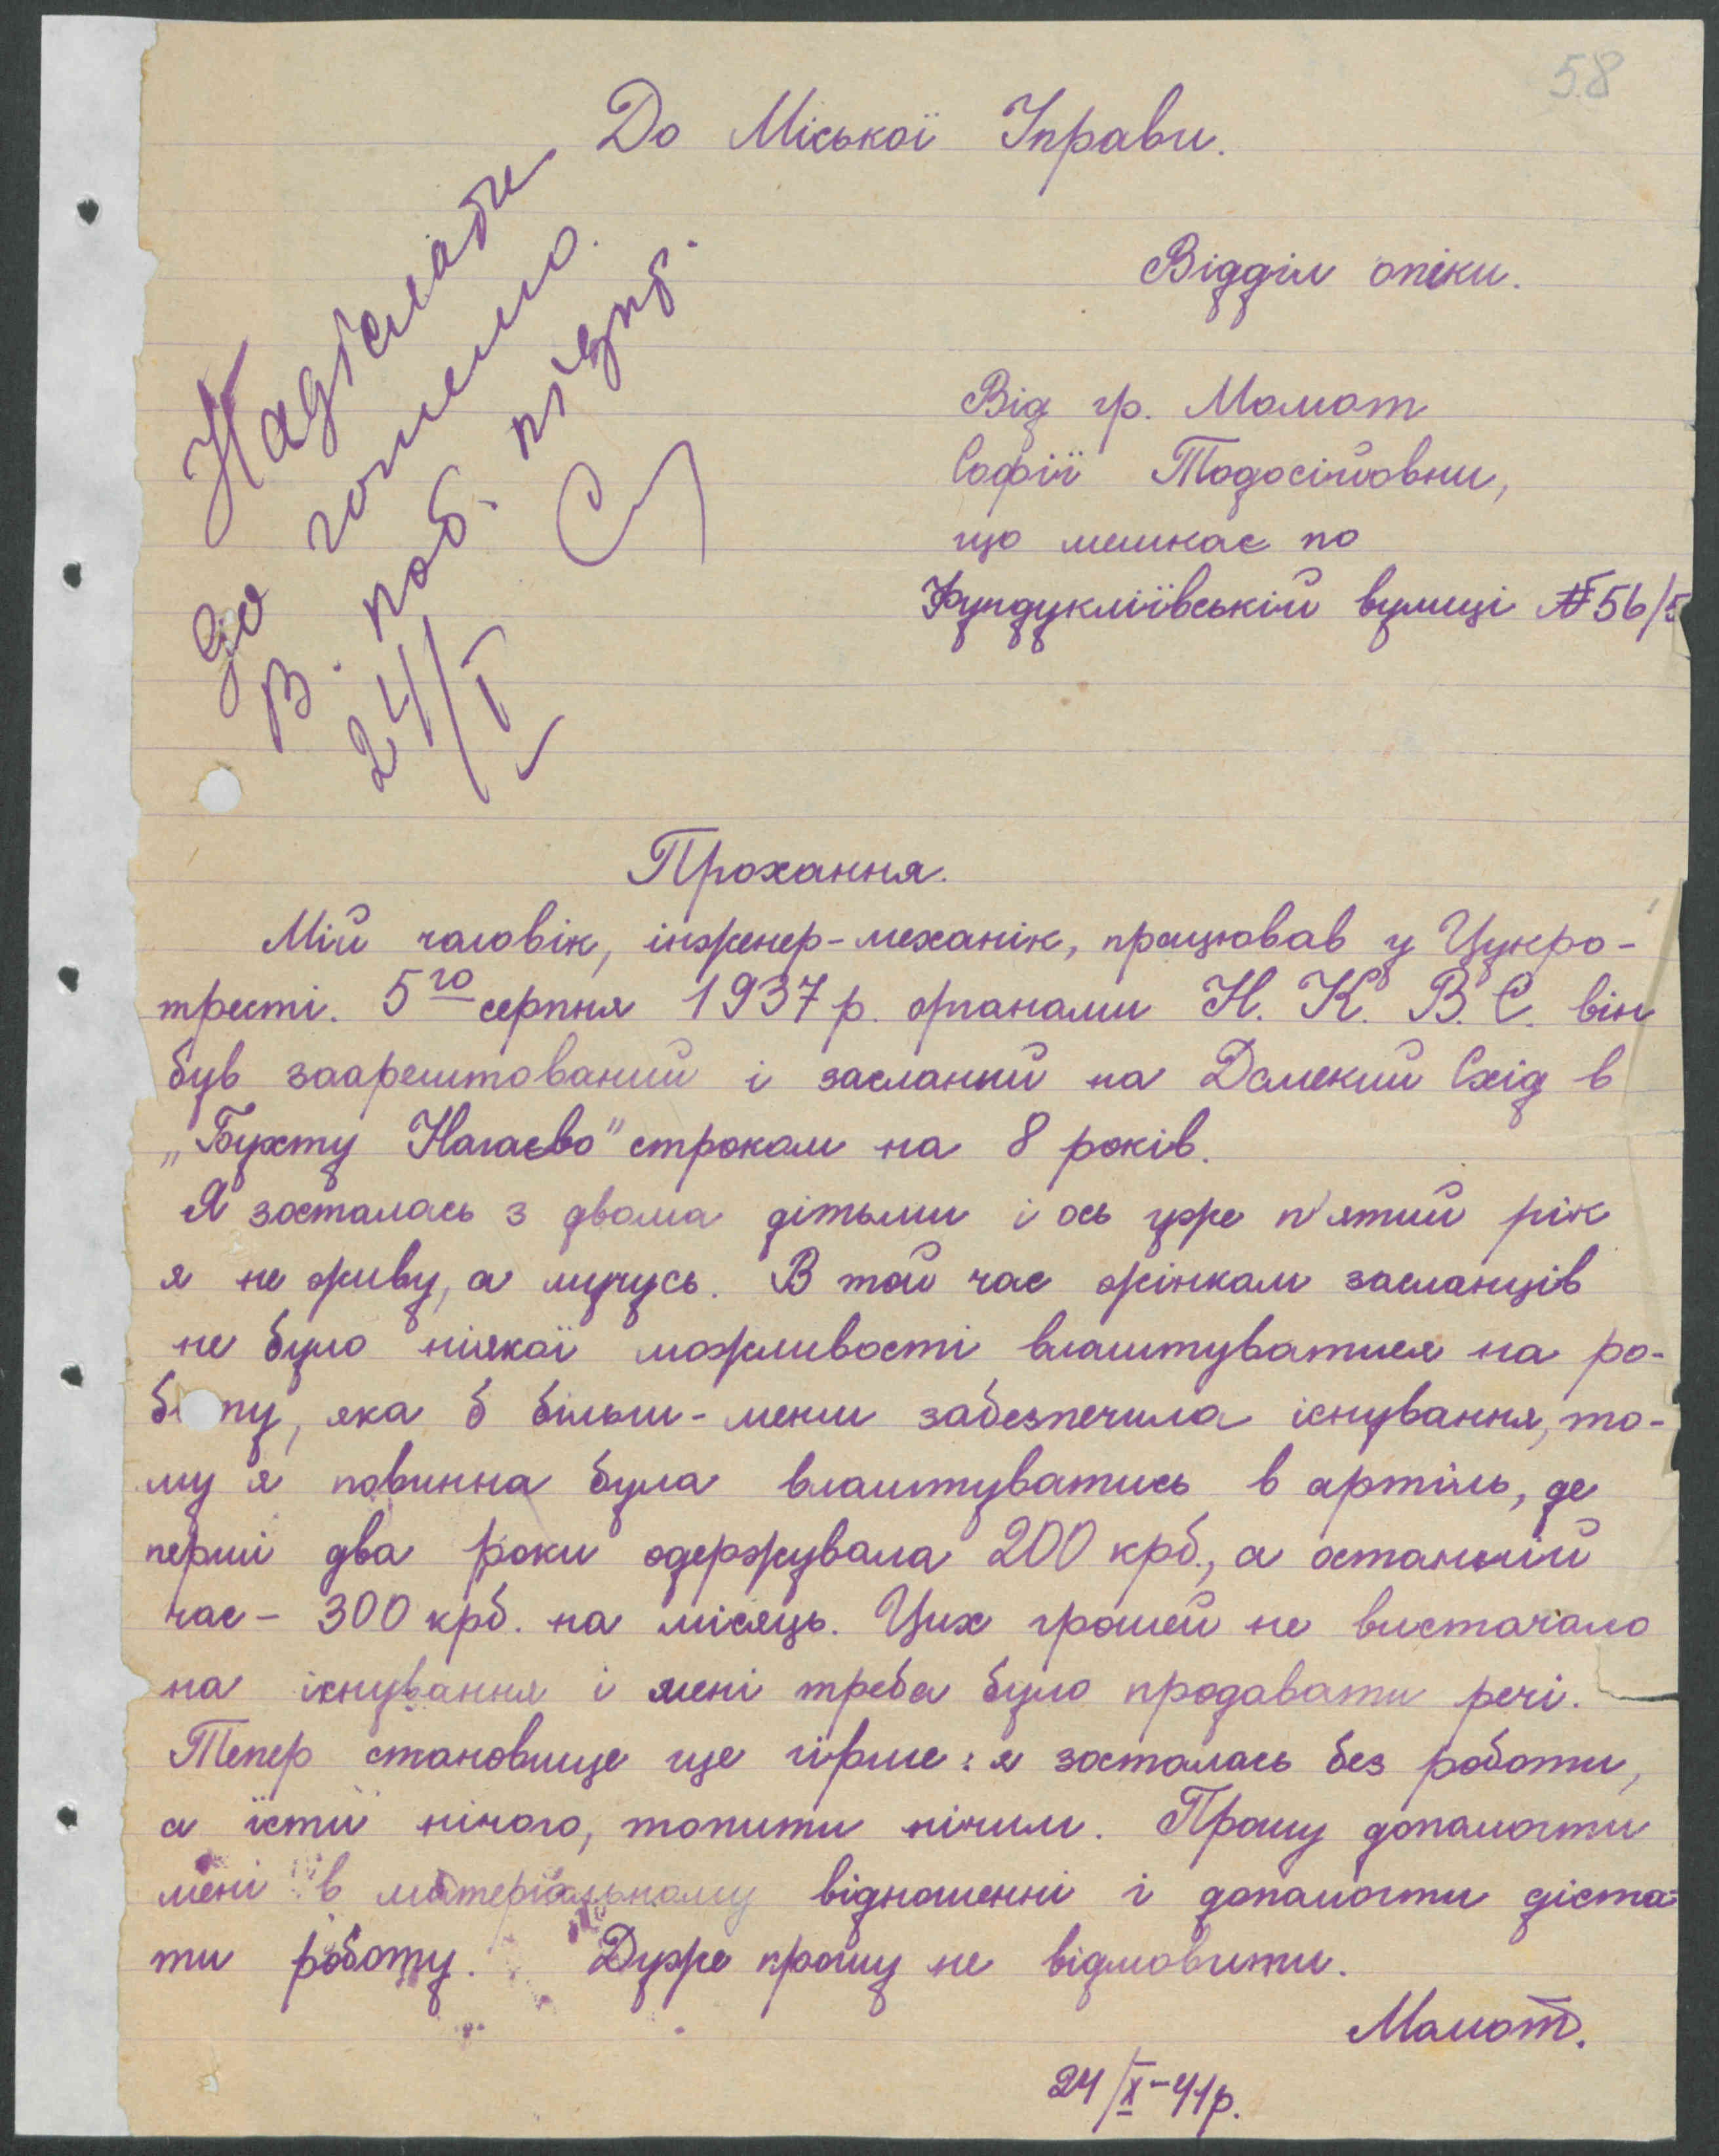 58
До Міської Управи.
Відділ опіки.
Надіслати
до
В. поб. підпр.
24/I
Від гр. Мамот
Софії Тодосіївовни,
що мешкає по
Фундукліївській вулиці № 56/5
Прохання.
Мій чоловік, інженер-механік, працював у Цукро-
тресті. 5го серпня 1937 р. органами Н. К. В. С. він
був заарештований і засланий на Далекий Схід в
„Бухту Нагаєво" строком на 8 років.
Я зосталась з двома дітьми і ось уже п'ятий рік
я не живу, а мучусь. В той час жінкам засланців
не було ніякої можливості влаштуватися на ро-
боту, яка б більш-менш забезпечила існування, то-
му я повинна була влаштуватись в артіль, де
перші два роки одержувала 200 крб., а останній
час – 300 крб. на місяць. Цих грошей не вистачало
на існування і мені треба було продавати речі.
Тепер становище ще гірше: я зосталась без роботи,
а їсти нічого, топити нічим. Прошу допомогти
мені в матеріальному відношенні і допомогти діста-
ти роботу. Дуже прошу не відмовити.
Мамот.
24/X–41 р.